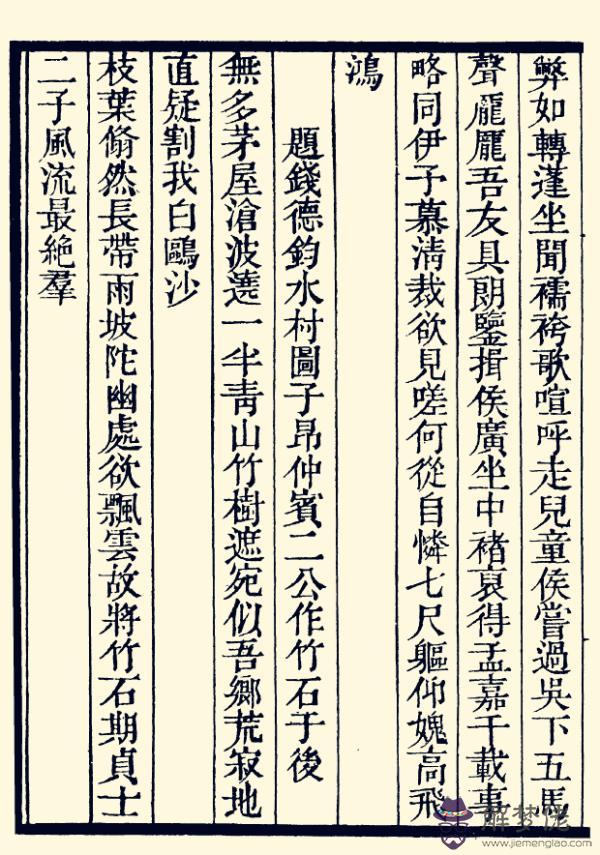 弊如轉蓬坐聞襦袴歌喧呼走兒童侯嘗過吳下五馬
聲龐龐吾友具朗鑒揖侯廣坐中褚裒得孟嘉千載事
略同伊予慕淸裁欲見嗟何從自憐七尺軀仰媿高飛
鴻
題錢德鈞水村圖子昂仲賓二公作竹石于後
無多茅屋滄波遶一半靑山竹樹遮宛似吾鄉荒寂地
直疑割我白鷗沙
枝葉翛然長帶雨坡陀幽處欲飄雲故將竹石期貞士
二子風流最絶羣
解梦佬
www.jiemenglao.com